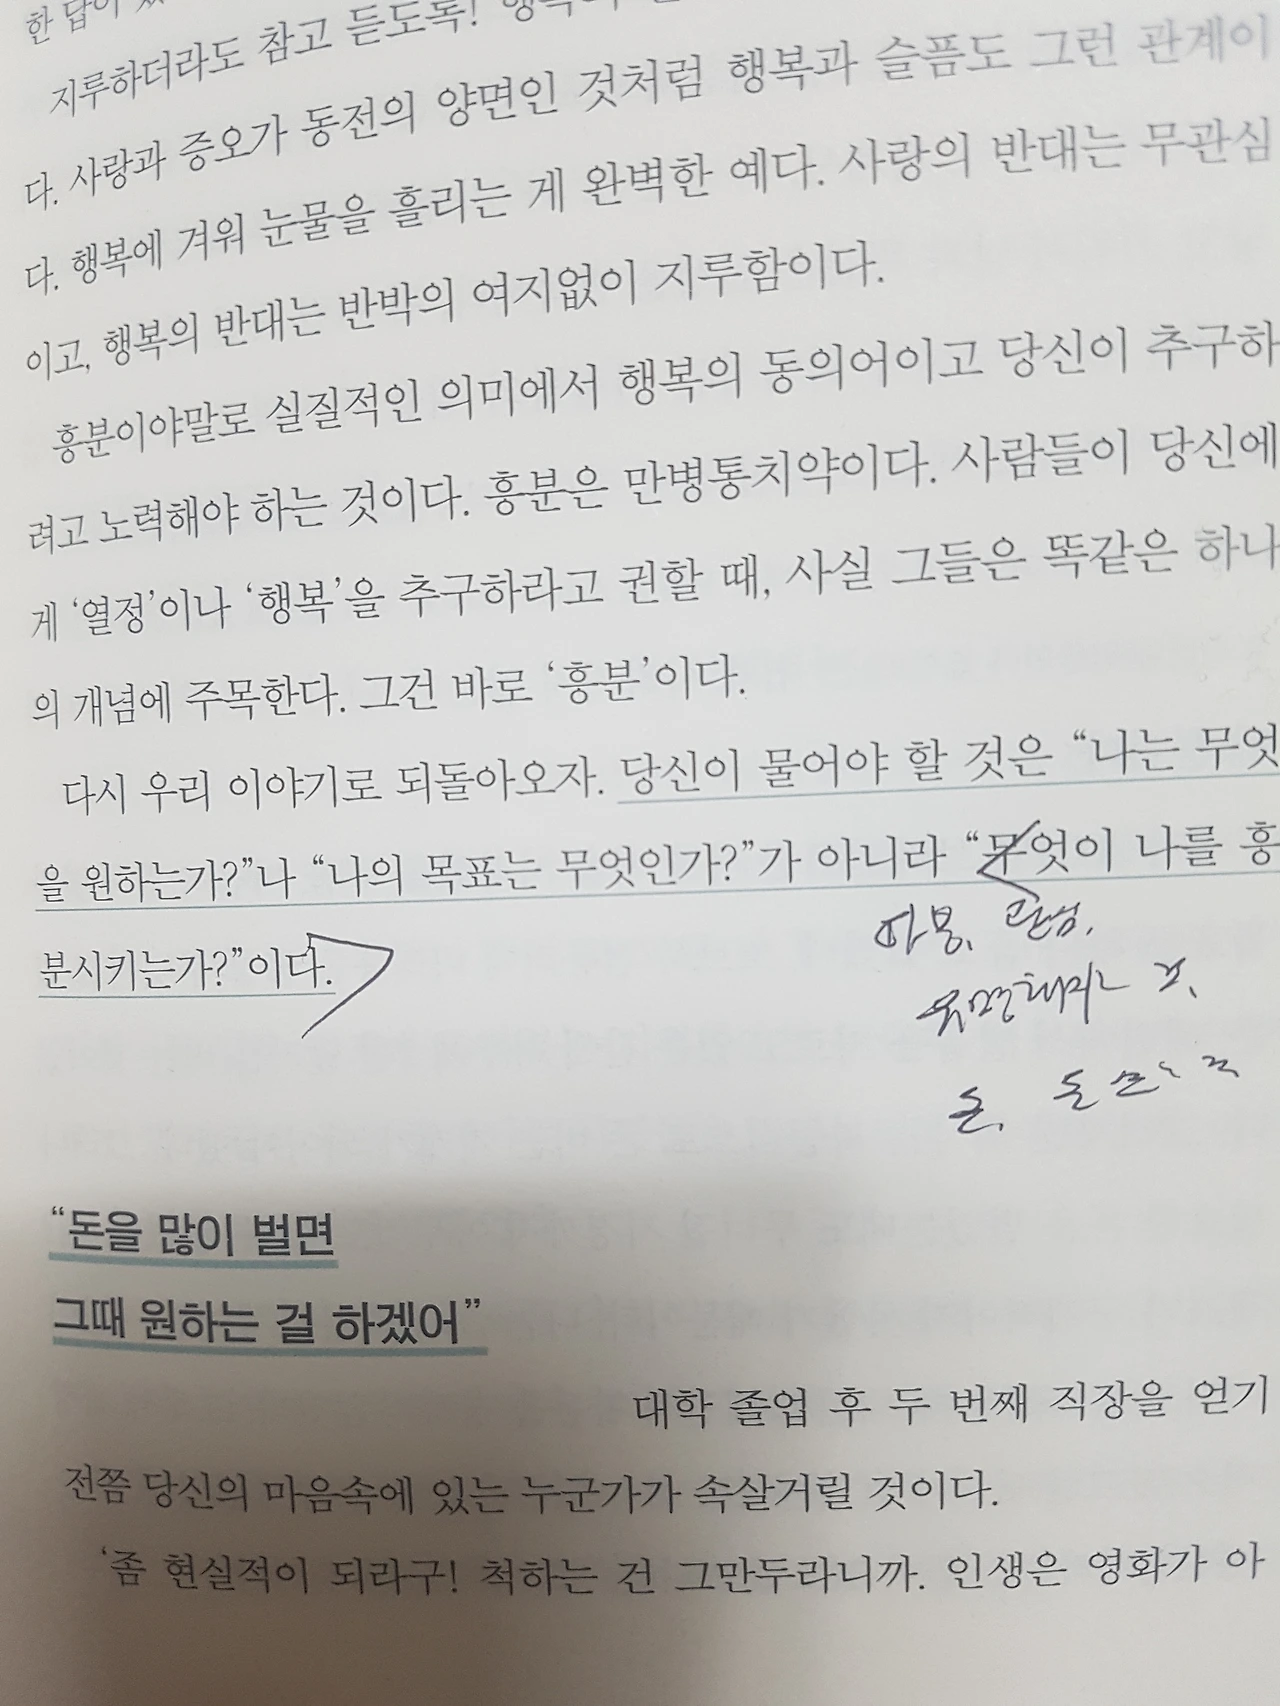 한 답이
지루하더라도 참고 듣도록!
다. 사랑과 증오가 동전의 양면인 것처럼 행복과 슬픔도 그런 관계이
다. 행복에 겨워 눈물을 흘리는 게 완벽한 예다. 사랑의 반대는 무관심
이고, 행복의 반대는 반박의 여지없이 지루함이다.
흥분이야말로 실질적인 의미에서 행복의 동의어이고 당신이 추구하
려고 노력해야 하는 것이다. 흥분은 만병통치약이다. 사람들이 당신에
게 ‘열정’이나 ‘행복’을 추구하라고 권할 때, 사실 그들은 똑같은 하나
의 개념에 주목한다. 그건 바로 ‘흥분’이다.
다시 우리 이야기로 되돌아오자. 당신이 물어야 할 것은 “나는 무엇
을 원하는가?”나 “나의 목표는 무엇인가?”가 아니라 “무엇이 나를 흥
분시키는가?”이다.
관심,
돈,
“돈을 많이 벌면
그때 원하는 걸 하겠어”
대학 졸업 후 두 번째 직장을 얻기
전쯤 당신의 마음속에 있는 누군가가 속살거릴 것이다.
‘좀 현실적이 되라구! 척하는 건 그만두라니까. 인생은 영화가 아